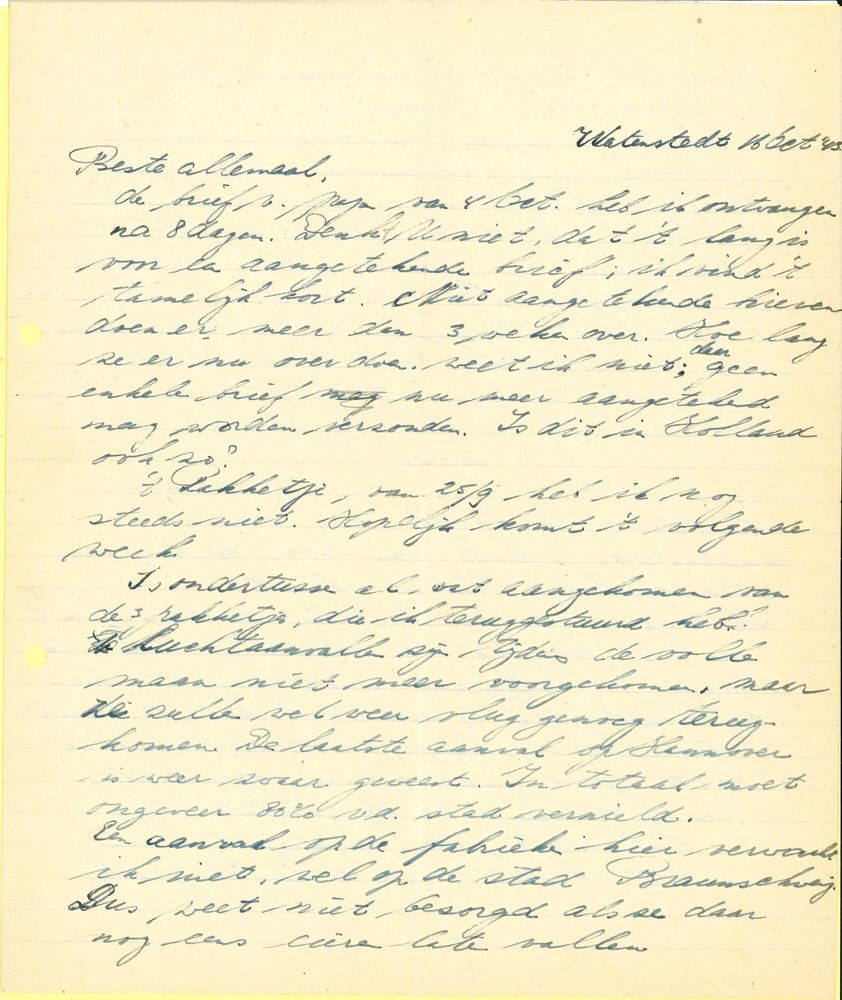 Watenstedt 16 Oct '43
Beste allemaal,
de brief v. papa van 4 Oct. heb ik ontvangen
na 8 dagen. Denkt U niet, dat 't lang is
voor een aangetekende brief; ik vind 't
tamelijk kort. Niet aangetekende brieven
doen er meer dan 3 weken over. Hoe lang
ze er nu over doen weet ik niet; daar geen
enkele brief mag nu meer aangetekend
mag worden verzonden. Is dit in Holland
ook zo?
't Pakketje, van 25/9 heb ik nog
steeds niet. Hopelijk komt 't volgende
week.
Is ondertussen al wat aangekomen van
de 3 pakketjes, die ik teruggestuurd heb.
De Luchtaanvallen zijn tijdens de volle
maan niet meer voorgekomen, maar
die zullen wel weer vlug genoeg terug-
komen. De laatste aanval op Hannover
is weer zwaar geweest. In totaal moet
ongeveer 80% v.d. stad vernield.
Een aanval op de fabrieken hier verwacht
ik niet, wel op de stad Braunschweig.
Dus weet niet bezorgd als ze daar
nog eens eieren laten vallen